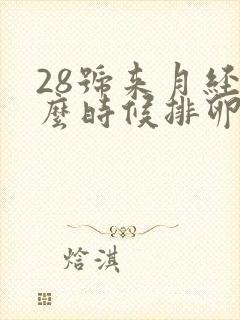 28號來月經
麼時候排卵
焓淇